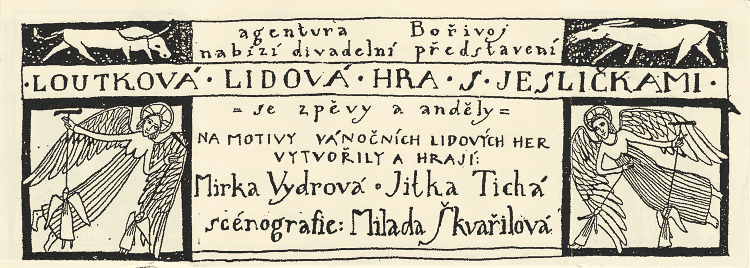 agentura Bořivoj
nabízí divadelní představení
·LOUTKOVÁ·LIDOVÁ·HRA·S·JESLIČKAMI·
=se zpěvy a anděly=
NA MOTIVY VÁNOČNÍCH LIDOVÝCH HER
VYTVOŘILY A HRAJÍ:
Mirka Vydrová·Jitka Tichá
scénografie: Milada Škvařilová